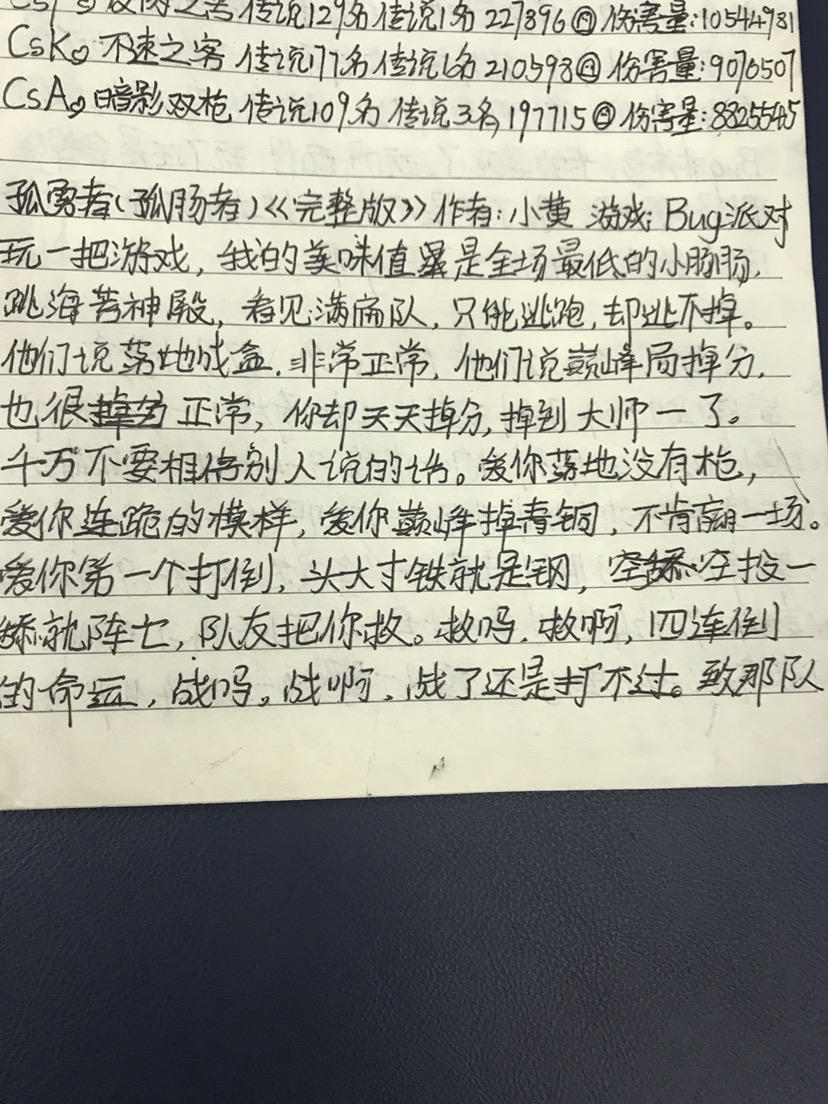 之客 传说129名 传说1名 227896 伤害量:10544981
CsK 不速之客 传说177名 传说16名 210598 伤害量:9076507
CsA 暗影双枪 传说109名 传说3名 197715 伤害量:8825545
孤勇者(孤肠者)《完整版》作者:小黄 游戏:Bug派对
玩一把游戏,我的美味值是全场最低的小肠肠.
跳海苔神殿,看见满商队,只能逃跑,却逃不掉。
他们说落地成盒.非常正常,他们说巅峰局掉分,
也很正常,你却天天掉分,掉到大师一了。
千万不要相信别人说的话。爱你落地没有枪,
爱你连跪的模样,爱你巅峰掉青铜,不肯离一场。
爱你第一个打倒,头大寸铁就是钢,空投一
舔就阵亡,队友把你救。救吗.救啊,四连倒
的命运,战吗。战啊.战了还是打不过。致那队